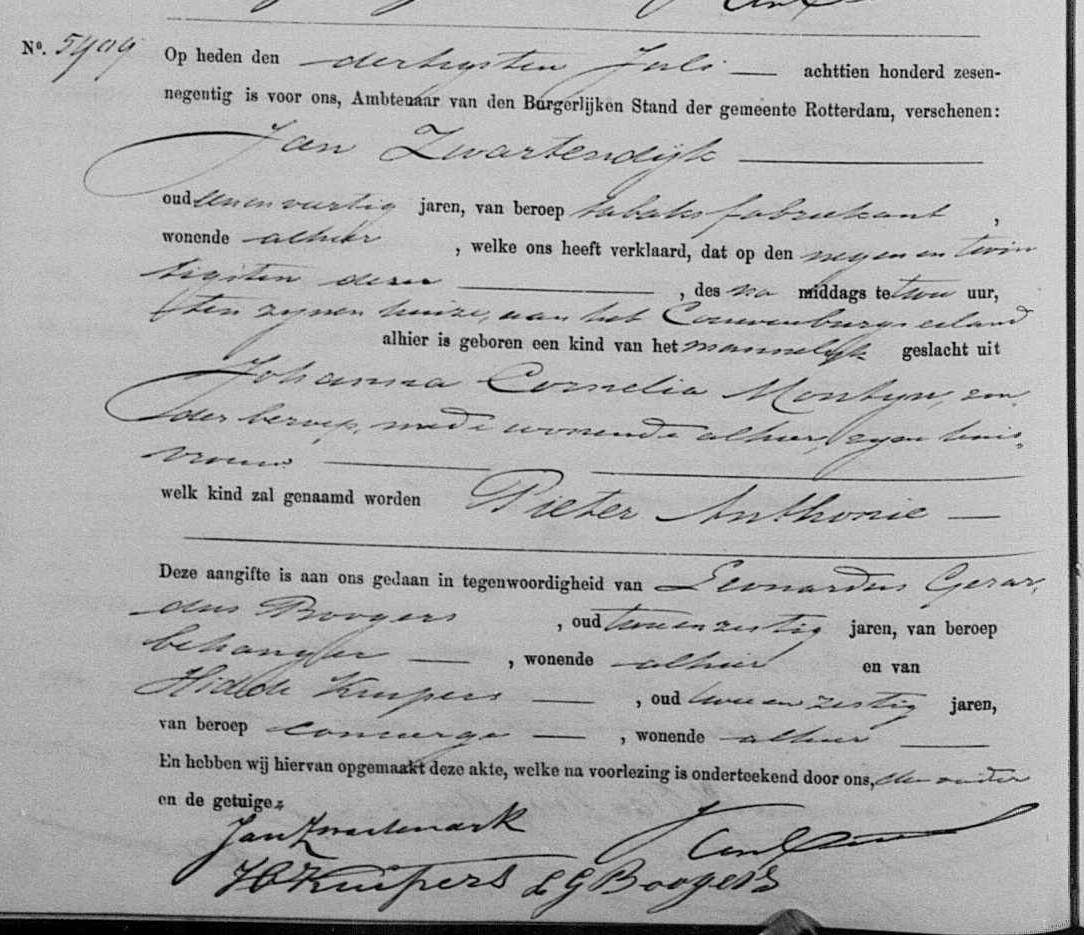 No. 5909 Op heden den dertigsten Juli achttien honderd zesen-
negentig is voor ons, Ambtenaar van den Burgerlijken Stand der gemeente Rotterdam, verschenen:
Jan Zwartendijk
oud eenenveertig jaren, van beroep tabaksfabriekant ,
wonende alhier , welke ons heeft verklaard, dat op den negenentwin
tigsten dezer , des na middags te twee uur,
ten zijnen huize, aan het Couwenburgseiland
alhier is geboren een kind van het mannelijk geslacht uit
Johanna Cornelia Montyn, zon
der beroep, mede wonende alhier, zijne huis-
vrouw
welk kind zal genaamd worden Pieter Anthonie
Deze aangifte is aan ons gedaan in tegenwoordigheid van Leonardus Gerar
dus Boogers , oud tweeenzestig jaren, van beroep
behanger , wonende alhier en van
Hidde Kuipers , oud tweeenzestig jaren,
van beroep concierge , wonende alhier
En hebben wij hiervan opgemaakt deze akte, welke na voorlezing is onderteekend door ons, den vader
en de getuigen
Jan Zwartendijk
HKuipers L G Boogers